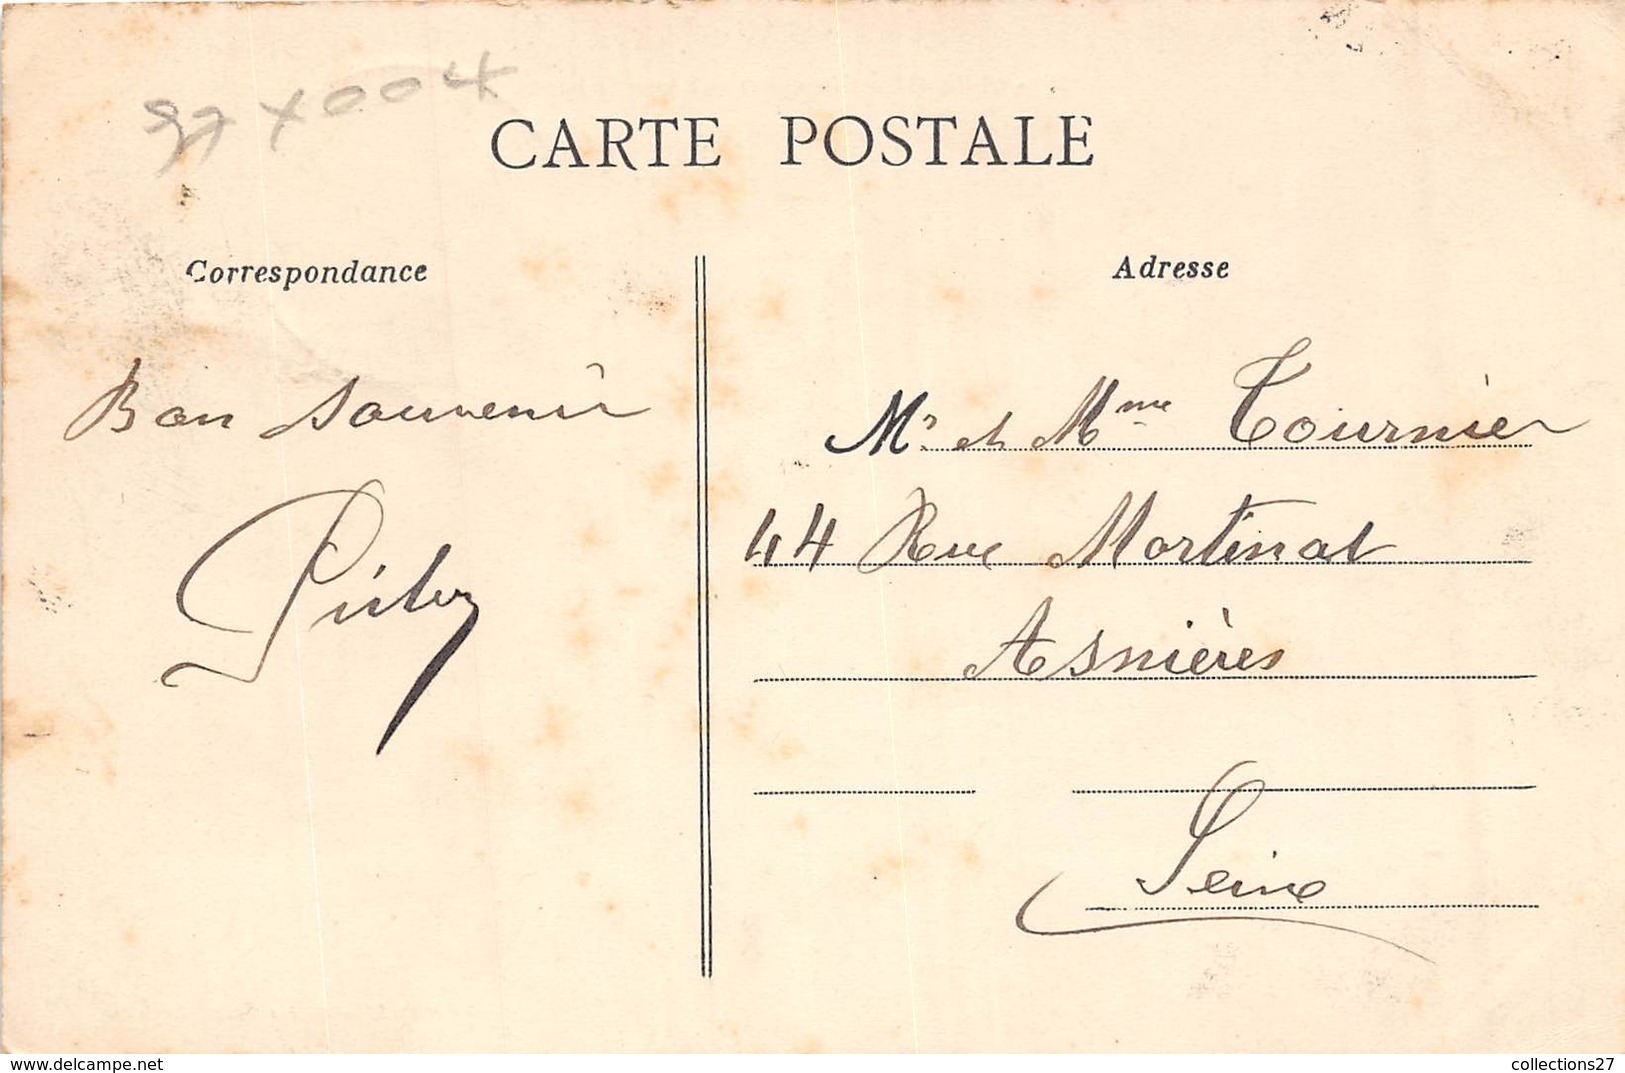 97 X 004
CARTE POSTALE
Correspondance
Adresse
Bon souvenir
Mr et Mme Tournier
44 Rue Mortinat
Asnières
Seine
www.delcampe.net
collections27